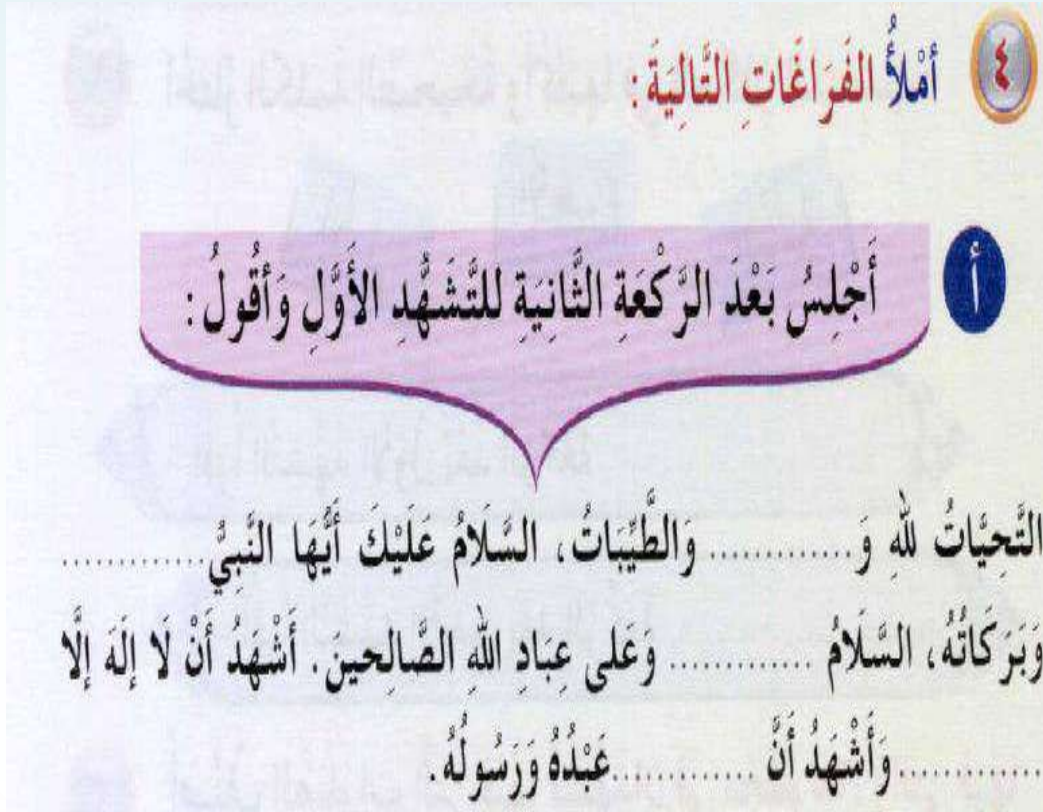 ٤ أَمْلَأُ الفَرَاغَاتِ التَّالِيَةَ :
أ أَجْلِسُ بَعْدَ الرَّكْعَةِ الثَّانِيَةِ للتَّشَهُّدِ الأَوَّلِ وَأَقُولُ :
التَّحِيَّاتُ للهِ وَ............. وَالطَّيِّبَاتُ، السَّلَامُ عَلَيْكَ أَيُّهَا النَّبِيُّ.............
وَبَرَكَاتُهُ، السَّلَامُ ............. وَعَلى عِبَادِ اللهِ الصَّالِحينَ. أَشْهَدُ أَنْ لَا إِلَهَ إِلَّا
.............وَأَشْهَدُ أَنَّ .............عَبْدُهُ وَرَسُولُهُ.